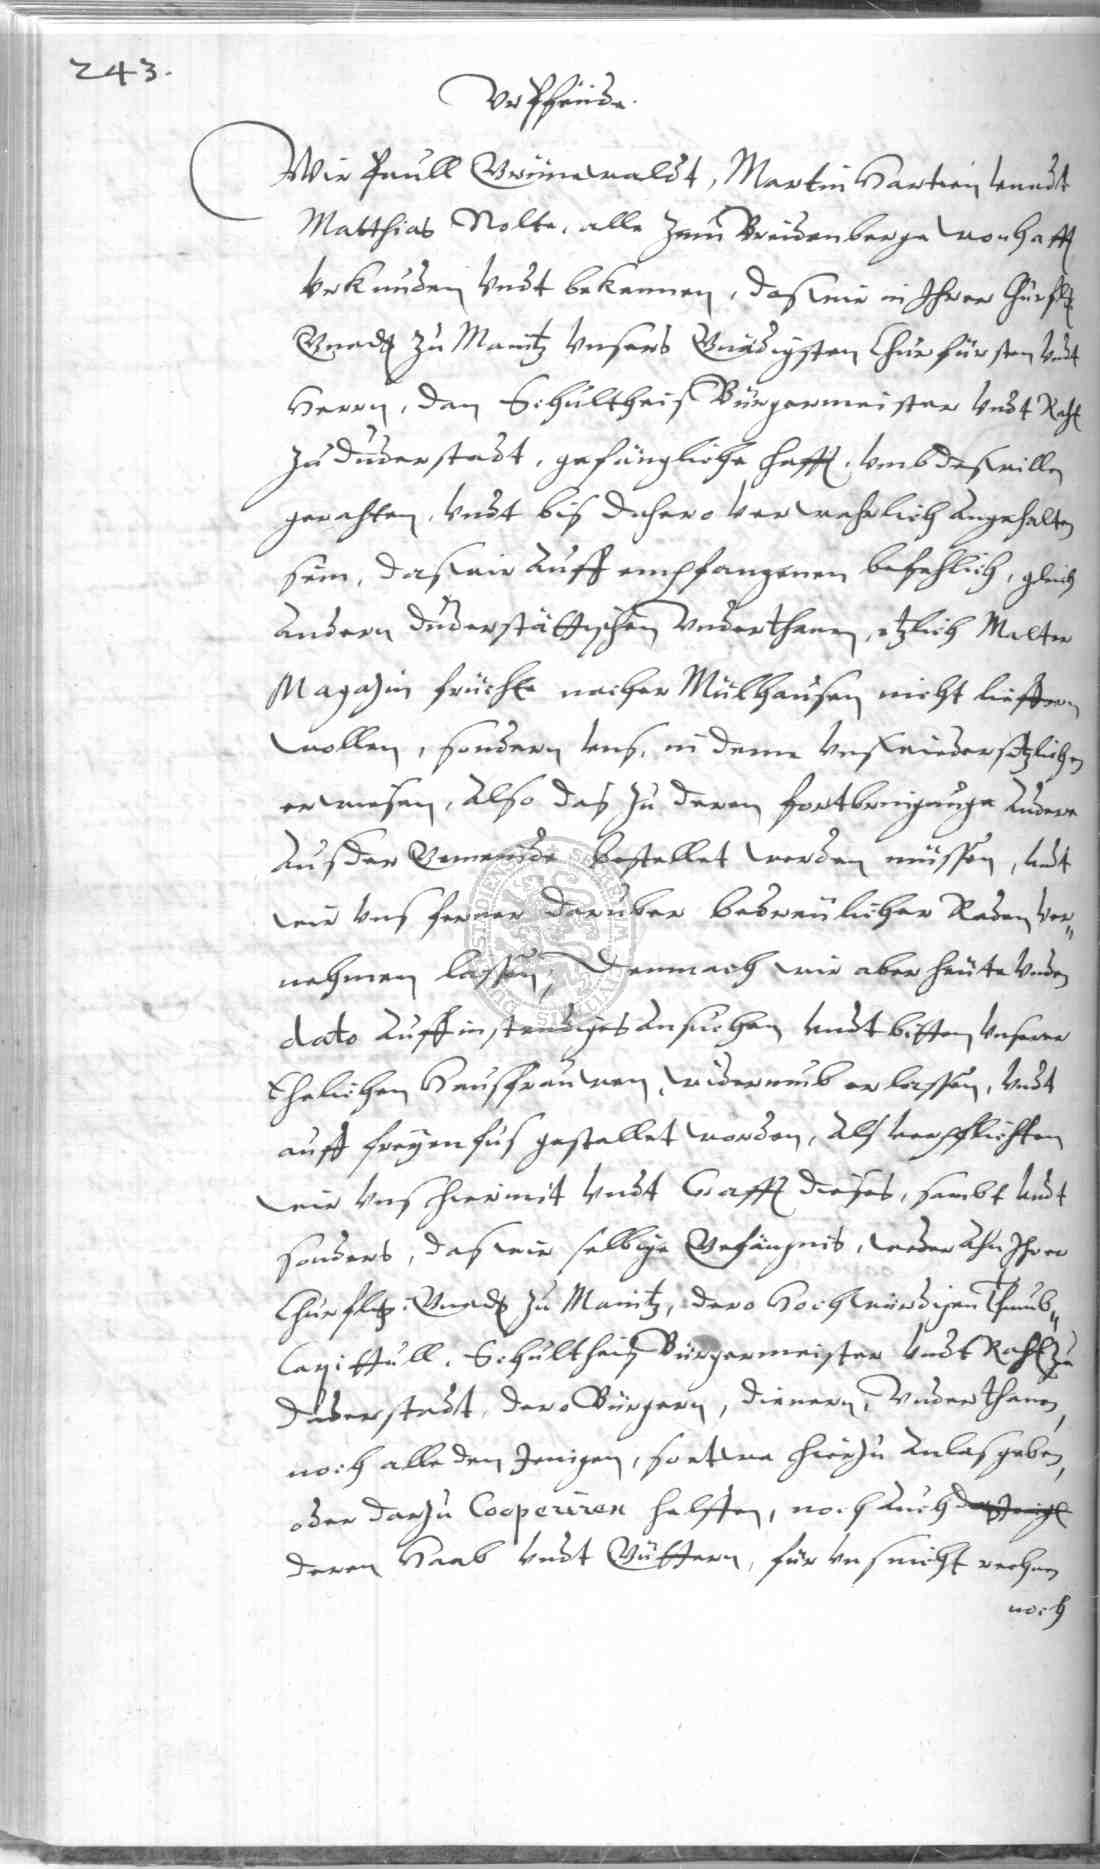 243.
Vrpheide.
Wir Paull Grünewaldt, Martin Hartwin vnndt
Matthias Nolte, alle zum Breidenberge wonhafft
Vrkunden vndt bekennen, daß wir in Ihrer Churfl
Gnad zu Maintz Vnsers Gnädigsten Churfürsten vndt
Herrn, den Schultheiß Bürgermeister vndt Raht
zu Duderstadt, gefängliche hafft, vmb deswillen
gerahten, vndt bis dahero verwahrlich angehalten
sein, daß wir auff empfangenen befehlich, gleich
andern Duderstättischen Vnderthanen, etzlich Malter
Magazin früchte nacher Mülhausen nicht lieffern
wollen, sondern vns, in deme vnß widersetzlichen
erwiesen, also das zu deren fortbringunge andere
aus der Gemeinde bestellet werden müssen, vndt
wir vns ferner daruber bedreulicher Reden ver„
nehmen lassen, Demnach wir aber heute vnden
dato auff instendiges ansuchen vndt bitten vnserer
Ehelichen Hausfrauwen, widerumb erlassen, vndt
auff freyen fus gestellet worden, Alß verpflichten
wir vns hiermit vndt Crafft dieses, sambt vndt
sonders, daß wir selbige Gefängnis, weder ahn Ihrer
Churfltz. Gnad zu Maintz, dero Hochwürdigen Thumb„
Capittull, Schultheiß Bürgermeister vndt Raht zu
Duderstadt, dero Bürgern, dienern, Vnderthanen,
noch alle den Jenigen, so etwa hierzu anlas geben,
oder darzu Cooperiren helffen, noch auch
deren Haab vndt Güttern, für vns nicht rechen
noch